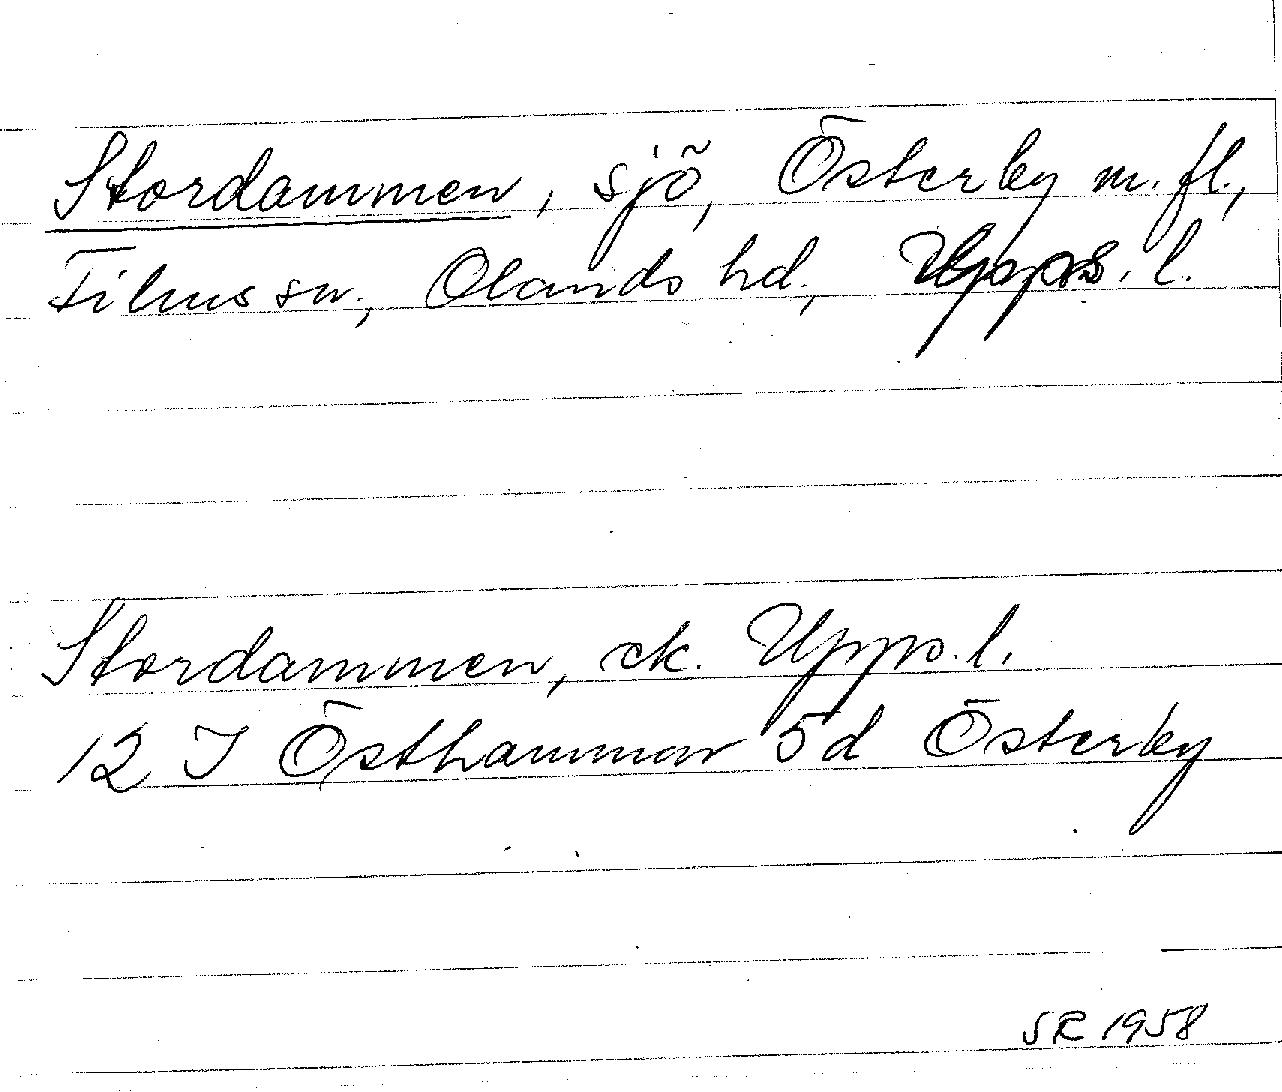 Stordammen, sjö, Österby m. fl.,
Films sn., Olands hd., Upps. l.
Stordammen, ek. Upps. l.
12 I Östhammar 5d Österby
SR 1958